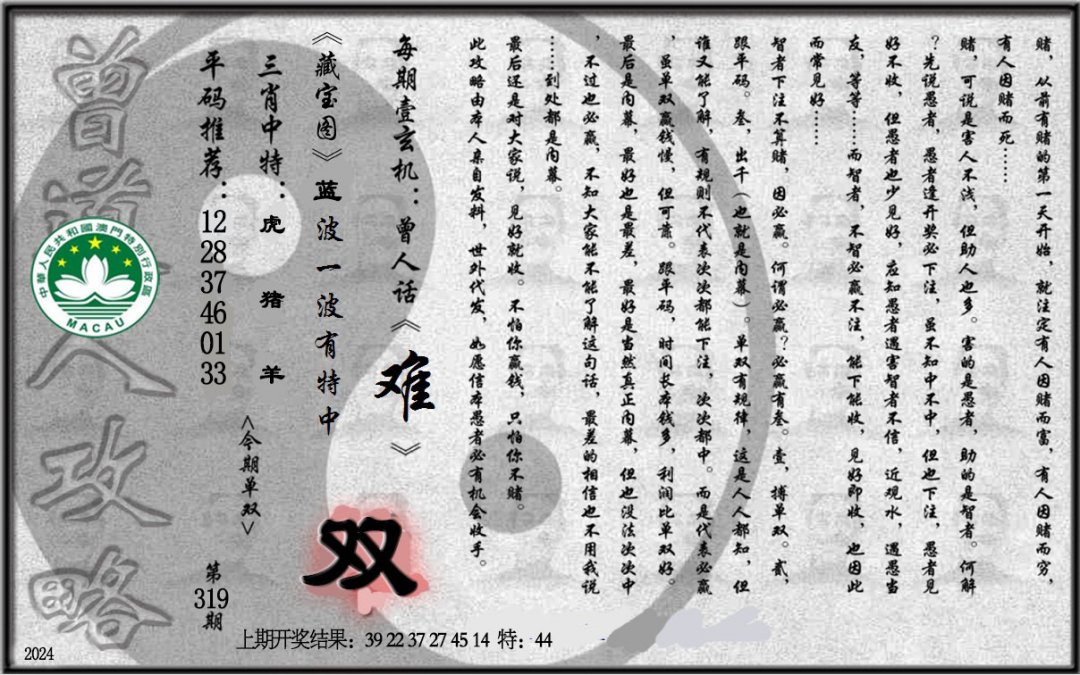 赌，从前有赌的第一天开始，就注定有人因赌而富，有人因赌而穷，
有人因赌而死……
赌，可说是害人不浅，但助人也多。害的是愚者，助的是智者。何解
？先说愚者，愚者逢开奖必下注，虽不知中不中，但也下注，愚者见
好不收，但愚者也少见好，应知愚者遇害智者不信，近观水，遇愚当
友，等等……而智者，不智必赢不注，能下能收，见好即收，也因此
而常见好……
智者下注不算赌，因必赢。何谓必赢？必赢有叁。壹，搏单双。贰，
跟平码。叁，出千（也就是内幕）。单双有规律，这是人人都知，但
谁又能了解，有规则不代表次次都能下注，次次都中。而是代表必赢
，虽单双赢钱慢，但可靠。跟平码，时间长本钱多，利润比单双好。
最后是内幕，最好也是最差，最好是当然真正内幕，但也没法次次中
，不过也必赢，不知大家能不能了解这句话，最差的相信也不用我说
……到处都是内幕。
最后还是对大家说，见好就收。不怕你赢钱，只怕你不赌。
此攻略由本人亲自发料，世外代发，如愿信本愚者必有机会收手。
每期壹玄机：曾人话《难》
《藏宝图》蓝波一波有特中
双
三肖中特：虎 猪 羊
<今期单双>
平码推荐：12 28 37 46 01 33
第319期
曾道人攻略
中華人民共和國澳門特別行政區
MACAU
上期开奖结果：39 22 37 27 45 14 特：44
2024